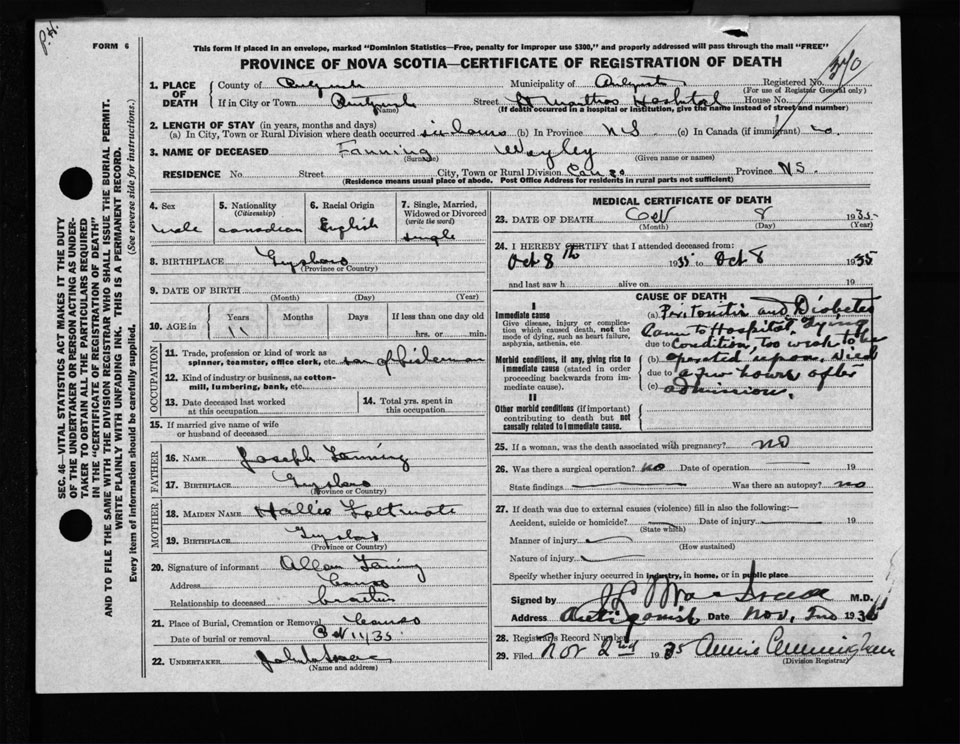 P.H.
FORM 6
This form if placed in an envelope, marked "Dominion Statistics—Free, penalty for improper use $300," and properly addressed will pass through the mail "FREE"
PROVINCE OF NOVA SCOTIA—CERTIFICATE OF REGISTRATION OF DEATH
SEC. 46—VITAL STATISTICS ACT MAKES IT THE DUTY
OF THE UNDERTAKER OR PERSON ACTING AS UNDER-
TAKER TO OBTAIN ALL THE PARTICULARS REQUIRED
IN THE "CERTIFICATE OF REGISTRATION OF DEATH"
AND TO FILE THE SAME WITH THE DIVISION REGISTRAR WHO SHALL ISSUE THE BURIAL PERMIT.
WRITE PLAINLY WITH UNFADING INK. THIS IS A PERMANENT RECORD.
Every item of information should be carefully supplied. (See reverse side for instructions.)
1. PLACE OF DEATH
County of Municipality of Registered No. 370
(For use of Registrar General only)
If in City or Town Street St Marthas Hospital House No.
(If death occurred in a hospital or institution, give the name instead of street and number)
2. LENGTH OF STAY (in years, months and days)
(a) In City, Town or Rural Division where death occurred six hours (b) In Province N S (c) In Canada (if immigrant)
3. NAME OF DECEASED Fanning
(Surname) (Given name or names)
RESIDENCE No. Street City, Town or Rural Division Canso Province N S.
(Residence means usual place of abode. Post Office Address for residents in rural parts not sufficient)
4. Sex male
5. Nationality (Citizenship) Canadian
6. Racial Origin English
7. Single, Married, Widowed or Divorced (write the word) single
8. BIRTHPLACE Guysboro
(Province or Country)
9. DATE OF BIRTH
(Month) (Day) (Year)
10. AGE in Years 11 Months Days If less than one day old
hrs. or min.
OCCUPATION
11. Trade, profession or kind of work as spinner, teamster, office clerk, etc. son of fisherman
12. Kind of industry or business, as cotton-mill, lumbering, bank, etc.
13. Date deceased last worked at this occupation
14. Total yrs. spent in this occupation
15. If married give name of wife or husband of deceased
FATHER
16. NAME Joseph Fanning
17. BIRTHPLACE Guysboro
(Province or Country)
MOTHER
18. MAIDEN NAME Hallie
19. BIRTHPLACE Guysboro
(Province or Country)
20. Signature of informant Allan Fanning
Address Canso
Relationship to deceased brother
21. Place of Burial, Cremation or Removal Canso
Date of burial or removal Oct 11/35
22. UNDERTAKER
(Name and address)
MEDICAL CERTIFICATE OF DEATH
23. DATE OF DEATH Oct 8 1935
(Month) (Day) (Year)
24. I HEREBY CERTIFY that I attended deceased from:
Oct 8th 1935 to Oct 8 1935
and last saw h alive on 19
CAUSE OF DEATH
I
Immediate cause
Give disease, injury or complication which caused death, not the mode of dying, such as heart failure, asphyxia, asthenia, etc.
Morbid conditions, if any, giving rise to immediate cause (stated in order proceeding backwards from immediate cause).
II
Other morbid conditions (if important) contributing to death but not causally related to immediate cause.
(a) Peritonitis and Diabetes
Came to Hospital, dying
due to Condition, too weak to be
(b) operated upon. Died
due to a few hours after
(c) admission.
25. If a woman, was the death associated with pregnancy? no
26. Was there a surgical operation? no Date of operation 19
State findings Was there an autopsy? no
27. If death was due to external causes (violence) fill in also the following:—
Accident, suicide or homicide? Date of injury 19
(State which)
Manner of injury
(How sustained)
Nature of injury
Specify whether injury occurred in industry, in home, or in public place
Signed by M.D.
Address Antigonish Date Nov. 2nd 1935
28. Registrar's Record Number
29. Filed Nov 2nd 1935 Annie Cunningham
(Division Registrar)